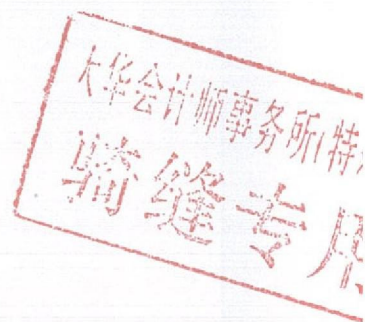 大华会计师事务所(特
骑缝专用